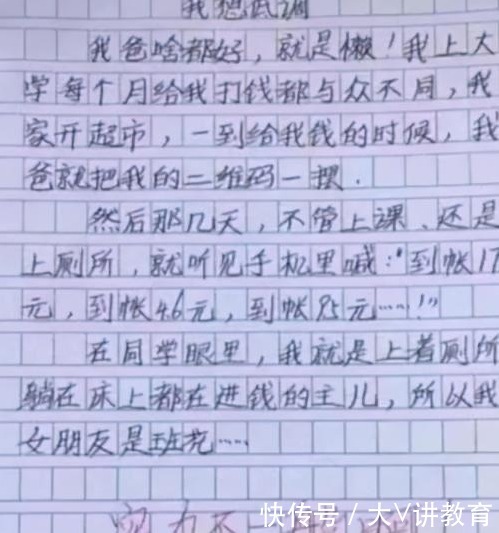 我想低调
我爸啥都好，就是懒！我上大
学每个月给我打钱都与众不同，我
家开超市，一到给我钱的时候，我
爸就把我的二维码一摆.
然后那几天，不管上课、还是
上厕所，就听见手机里喊："到帐17
元，到帐46元，到帐85元……！"
在同学眼里，我就是上着厕所
躺在床上都在进钱的主儿，所以我
女朋友是班花……
快传号 / 大V讲教育